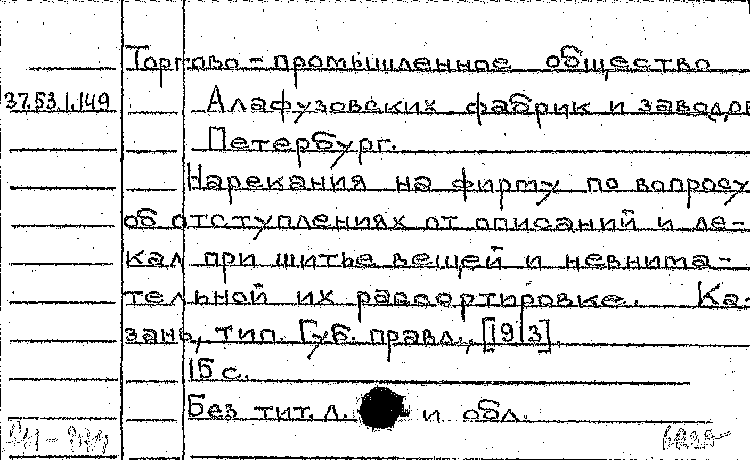 Торгово-промышленное общество
37.53.1.149 Алафузовских фабрик и заводов
Петербург.
Нарекания на фирму по вопросу
об отступлениях от описаний и ле-
кал при шитье вещей и невнима-
тельной их рассортировке. Ка-
зань, тип. Губ. правл., [1913]
16 с.
Без тит. л. и обл.